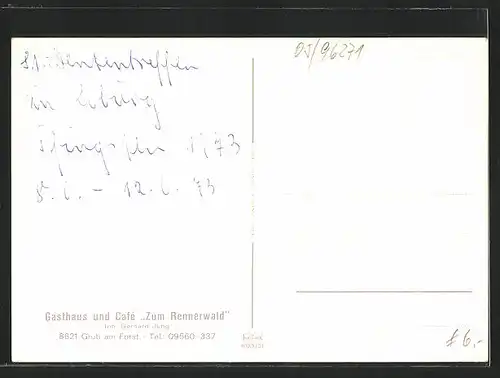 DJ/96271
in Coburg
Pfingsten 1973
8.6. - 12.6.73
Gasthaus und Café „Zum Rennerwald"
Inh. Gerhard Jung
8621 Grub am Forst · Tel. 09560-337
£6,-